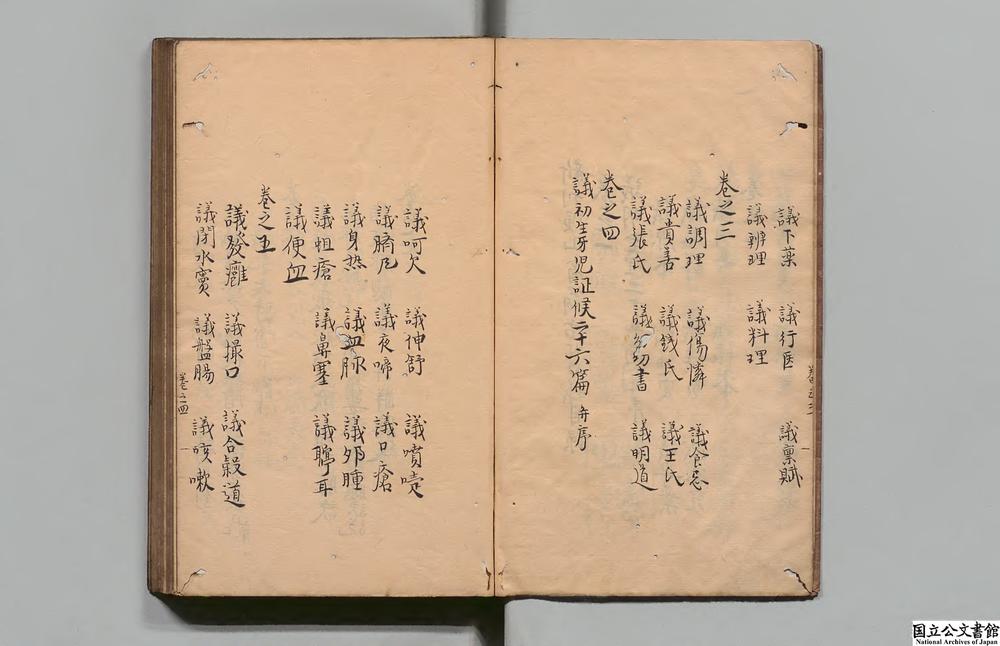 議下藥 議行医 議禀賦
議辨理 議料理
巻之三
議調理 議傷憐 議食忌
議貴善 議銭氏 議王氏
議張氏 議 書 議明道
巻之四
議初生牙児証候二十六篇 并序
議呵欠 議伸舒 議噴嚏
議臍凡 議夜啼 議口瘡
議身熱 議血脉 議卵腫
議蛆瘡 議鼻塞 議聤耳
議便血
巻之五
議發癰 議撮口 議合穀道
議閉水竇 議盤腸 議咳嗽
巻之四 一
国立公文書館
National Archives of Japan